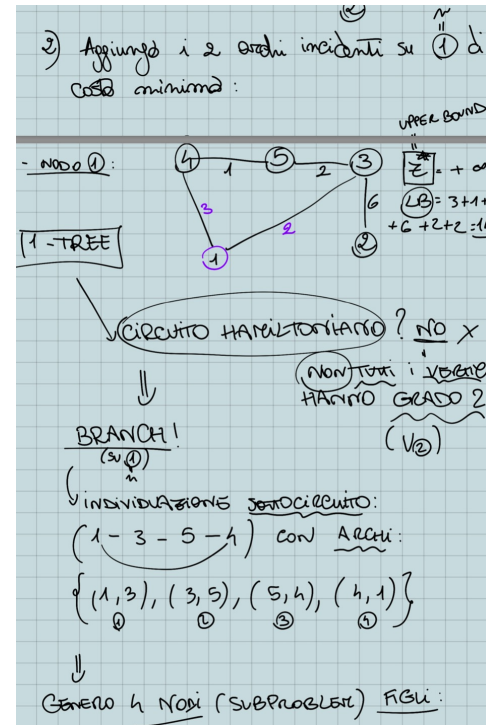 ②
n
2) Aggiungo i 2 archi incidenti su ① di
costo minimo:
UPPER BOUND
- NODO ①:
4 1 5 2 3
Z* = + ∞
3 2 6
LB = 3+1+
+6 +2+2 =14
1-TREE
1 2
CIRCUITO HAMILTONIANO ? NO X
NON TUTTI i VERTIC
HANNO GRADO 2
(V②)
BRANCH!
(SU ①)
n
INDIVIDUAZIONE SOTTOCIRCUITO:
(1 - 3 - 5 - 4) CON ARCHI:
{(1,3), (3,5), (5,4), (4,1)}
① ② ③ ④
GENERO 4 NODI (SUBPROBLEM) FIGLI: